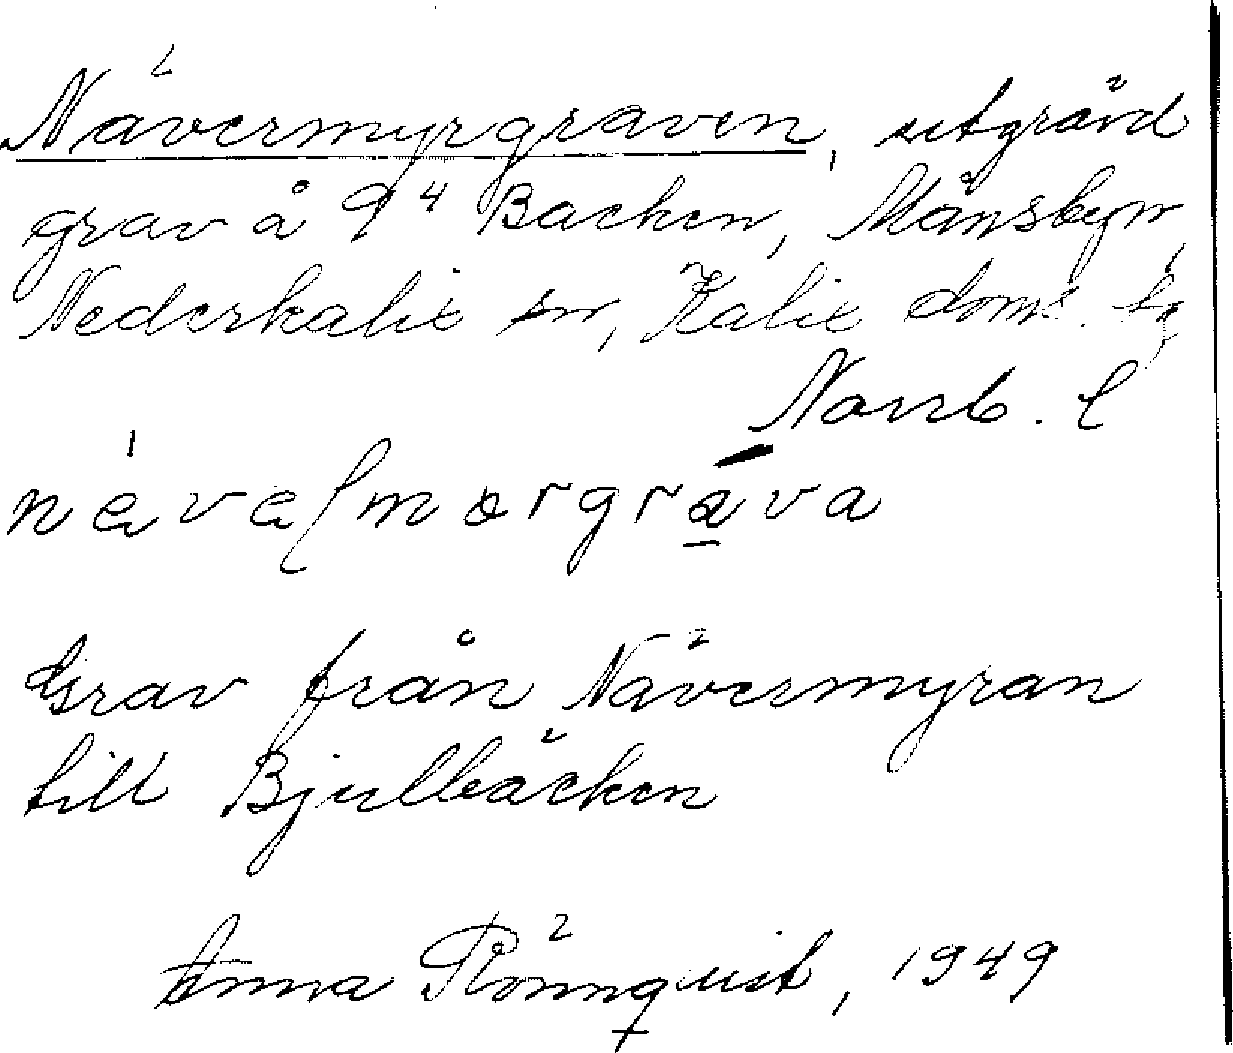 Nävermyrgraven, utgrävd
grav å 9⁴ Backen, Månsbyn,
Nederkalix sn, Kalix doms. tg
Norrb. l
návalmorgráva
Grav från Nävermyran
till Bjullbäcken
Anna Rönnquist, 1949